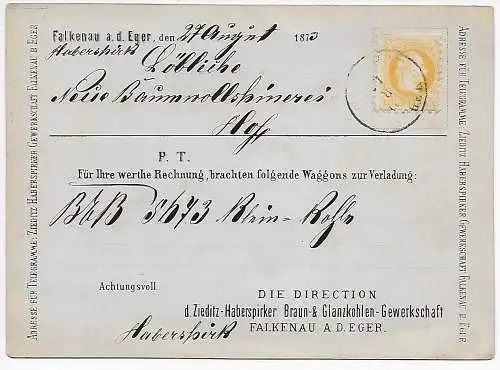 Falkenau a.d. Eger, den 27 August 1873
Haberspirk
Löbliche
Neue Baumwollspinnerei
Hof
P. T.
Für Ihre werthe Rechnung, brachten folgende Waggons zur Verladung:
BEB 5673 Klein-Kohle
Achtungsvoll
DIE DIRECTION
d. Zieditz-Haberspirker Braun- & Glanzkohlen-Gewerkschaft
FALKENAU A.D. EGER.
Haberspirk
ADRESSE FÜR TELEGRAMME: ZIEDITZ HABERSPIRGER GEWERKSCHAFT FALKENAU B EGER
ADRESSE FÜR TELEGRAMME: ZIEDITZ HABERSPIRKER GEWERKSCHAFT FALKENAU B EGER